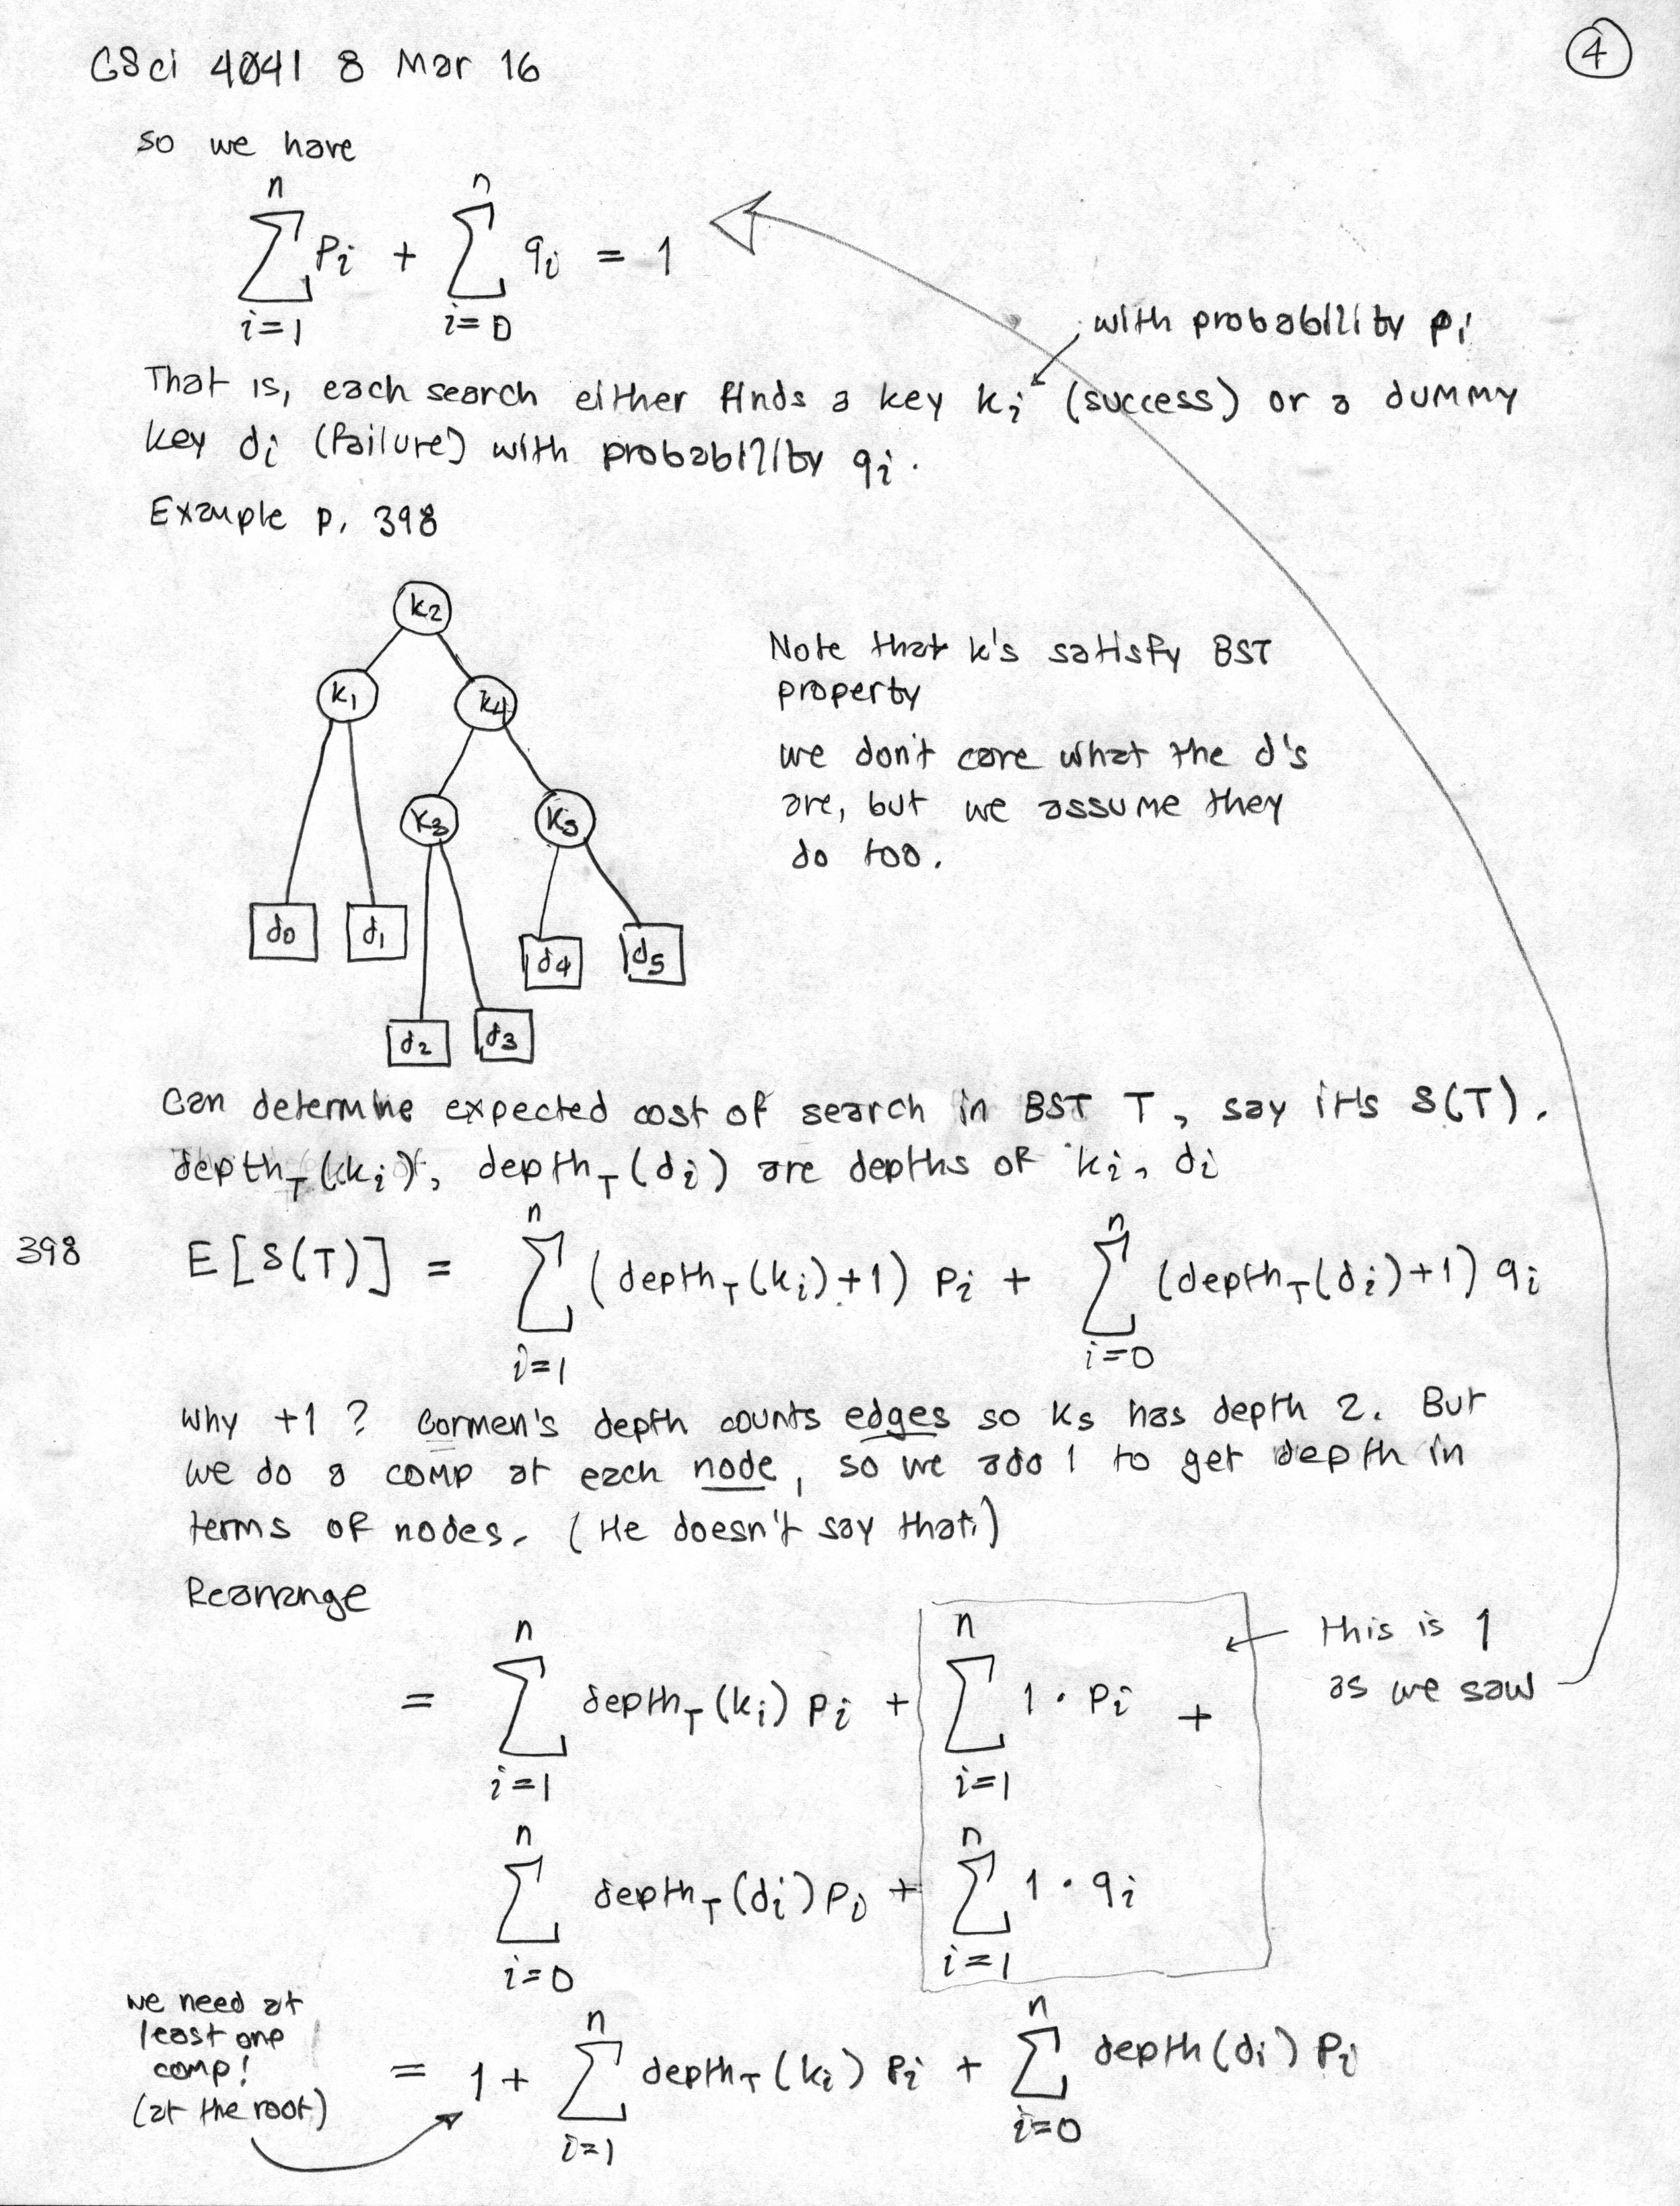 CSci 4041 8 Mar 16
4
so we have
n n
∑ pi + ∑ qi = 1
i=1 i=0
with probability pi
That is, each search either finds a key ki (success) or a dummy
key di (failure) with probability qi.
Example p. 398
k2
k1 k4
k3 k5
d0 d1 d4 d5
d2 d3
Note that k's satisfy BST
property
we don't care what the d's
are, but we assume they
do too.
Can determine expected cost of search in BST T, say it's S(T).
depthT(ki), depthT(di) are depths of ki, di
n n
398 E[S(T)] = ∑ (depthT(ki)+1) pi + ∑ (depthT(di)+1) qi
i=1 i=0
Why +1? Cormen's depth counts edges so k5 has depth 2. But
we do a comp at each node, so we add 1 to get depth in
terms of nodes. (He doesn't say that.)
Rearrange
n n
= ∑ depthT(ki) pi + ∑ 1 · pi +
i=1 i=1
this is 1
as we saw
n n
∑ depthT(di) pi + ∑ 1 · qi
i=0 i=1
we need at
least one
comp!
(at the root)
n n
= 1 + ∑ depthT(ki) pi + ∑ depth(di) pi
i=1 i=0